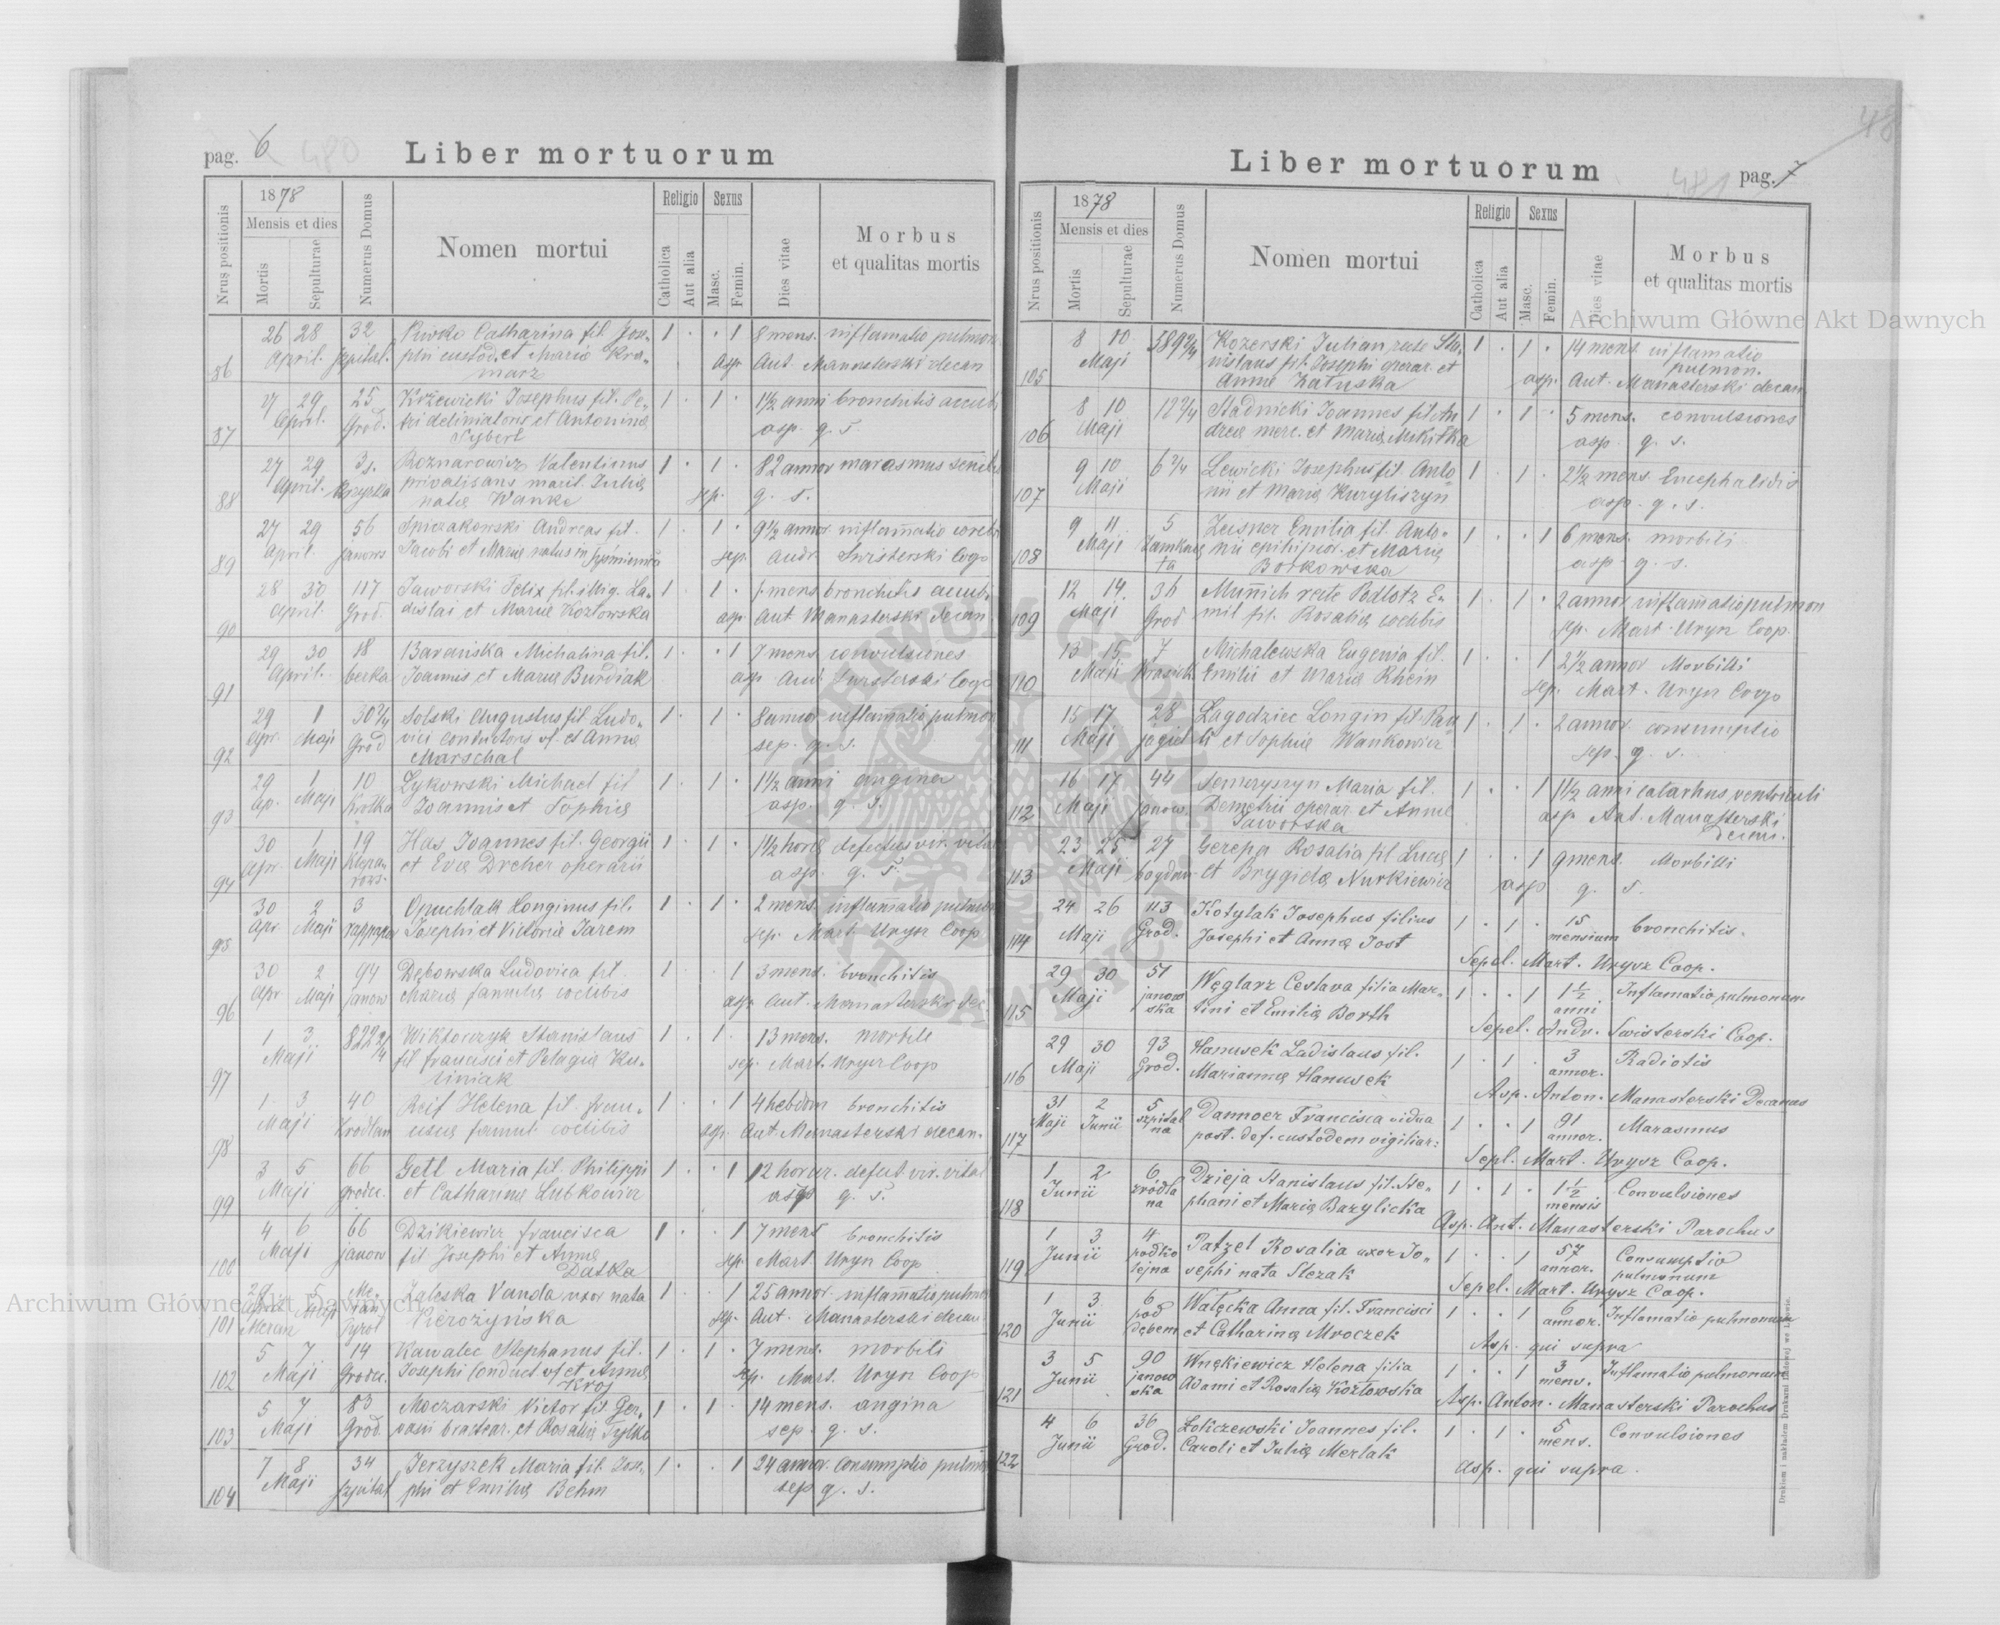 pag. 6
480
Liber mortuorum
Nrus positionis
1878
Mensis et dies
Mortis
Sepulturae
Numerus Domus
Nomen mortui
Religio
Catholica
Aut alia
Sexus
Masc.
Femin.
Dies vitae
Morbus
et qualitas mortis
86 26 28 April. 32 Catharina fil. Jose-
phi custod. et Maria Kra-
marz
1 . . 1 8 mens. inflamatio pulmon
asp. Ant. Manasterski decan
87 29 April. 25 Grod. Josephus fil. Pe-
tri et Antonina
1 . 1 . 1½ anni bronchitis acut
asp. q. s.
88 27 29 April. Valentinus
privatisans marit. Julia
nata Wanke
1 . 1 . 82 annor marasmus senil
sep. q. s.
89 27 29 April. 56 janows Andreas fil.
Jacobi et Maria natus in
1 . 1 . 9½ annor inflammatio
sep. Andr. Swisterski Coop
90 28 30 April 117 Grod. Jaworski Felix fil. La-
dislai et Maria Kozłowska
1 . 1 . mens bronchitis acut.
asp. Ant. Manasterski decan.
91 29 30 April. 18 berka Barańska Michalina fil.
Joannis et Maria Burdiak
1 . . 1 7 mens. convulsiones
asp. And. Swisterski Coop
92 29 Apr. 1 Maji 30 2/4 Grod Solski Augustus fil. Ludo-
vici conductoris vf. et Anna
Marschal
1 . 1 . 8 annor inflamatio pulmon
sep. q. s.
93 29 Ap. 1 Maji 10 Łykowski Michael fil
Joannis et Sophia
1 . 1 . 1½ anni angina
asp. q. s.
94 30 Apr. 1 Maji 19 Has Joannes fil. Georgii
et Eva Drcher operarii
1 . 1 . 1½ hora defectus vir. vital
asp. q. s.
30 Apr. 2 Maji 3 rappapor Opuchlak Longinus fil.
Josephi et Victoria Jarem
1 . 1 . 2 mens. inflamatio pulmon
sep. Mart. Uryz Coop
96 30 Apr 2 Maji 94 janow Dębowska Ludovica fil.
Maria famula coelibis
1 . . 1 3 mens. bronchitis
asp. Ant. Manasterski dec
97 1 3 Maji 822 2/4 Wiktorczyk Stanislaus
fil Francisci et Pelagia Ku-
liniak
1 . 1 . 13 mens. morbili
sep. Mart. Uryz Coop
98 1 3 Maji 40 Reif Helena fil. Fran-
cisca famul. coelibis
1 . . 1 4 hebdom bronchitis
asp. Ant. Manasterski decan.
99 3 5 Maji 66 grodec. Getl Maria fil. Philippi
et Catharina Lubkowicz
1 . . 1 12 horar. defect. vir. vital
asp q. s.
100 4 6 Maji 66 janow Dzikiewicz Francisca
fil Josephi et Anna
Datka
1 . . 1 7 mens bronchitis
sep. Mart. Uryz Coop
101 5 Maji Meran Tyrol Zaleska Vanda uxor nata
1 . . 1 25 annor. inflamatio pulmo
sep. Ant. Manasterski decan
102 5 7 Maji 14 Grodec. Kawalec Stephanus fil.
Josephi conduct vf et Anna
Kroj
1 . 1 . 7 mens. morbili
sep. Mart. Uryz Coop
103 5 7 Maji 83 Grod. Moczarski Victor fil. Ger-
vasii bractear. et Rosalia Tylko
1 . 1 . 14 mens. angina
sep. q. s.
104 7 8 Maji 34 szpital Jerzyszek Maria fil. Jose-
phi et Emilia Behm
1 . . 1 24 annor. Consumptio pulmon
sep q. s.
Liber mortuorum
481
pag. 7
48
Nrus positionis
1878
Mensis et dies
Mortis
Sepulturae
Numerus Domus
Nomen mortui
Religio
Catholica
Aut alia
Sexus
Masc.
Femin.
Dies vitae
Morbus
et qualitas mortis
105 8 10 Maji 589 2/4 Kozerski Julian recte Sta-
nislaus fil. Josephi operar. et
Anna Załuska
1 . 1 . 14 mens. inflamatio
pulmon.
asp. Ant. Manasterski decan
106 8 10 Maji 12 2/4 Stadnicki Joannes fil. An
drea merc. et Maria Mikitka
1 . 1 . 5 mens. convulsiones
asp. q. s.
107 9 10 Maji 6 2/4 Lewicki Josephus fil. Anto
nii et Maria Kuryliszyn
1 . 1 . 2½ mens. Encephalidis
asp. q. s.
108 9 11 Maji 5 Zamknięta Emilia fil. Anto-
nii et Maria
Borkowska
1 . . 1 6 mens. morbili
asp. q. s.
109 12 14 Maji 36 Grod Munich recte Podlotz E-
mil fil. Rosalia coelibis
1 . 1 . 2 annor inflamatio pulmon
sep. Mart. Uryz Coop.
110 13 15 Maji 7 Michalewska Eugenia fil.
Emilii et Maria Rhein
1 . . 1 2½ annor Morbilli
sep. Mart. Uryz Coop
111 15 17 Maji 28 jagiel Łagodziec Longin fil. Pau
li et Sophia Wankowicz
1 . 1 . 2 annor. consumptio
sep. q. s.
112 16 17 Maji 44 janow. Maria fil.
Demetrii operar. et Anna
Jaworska
1 . . 1 1½ anni catarhus ventriculi
asp. Ant. Manasterski
decan.
113 23 25 Maji 27 bogdan. Gerega Rosalia fil Luca
et Brygida Nurkiewicz
1 . . 1 9 mens. Morbilli
asp q. s.
114 24 26 Maji 113 Grod. Kotylak Josephus filius
Josephi et Anna Jost
1 . 1 . 15 mensium bronchitis.
Sepel. Mart. Uryz Coop.
115 29 30 Maji 51 janowska Węglarz Ceslava filia Mar-
tini et Emilia Borth
1 . . 1 1½ anni Inflamatio pulmonum
Sepel. Andr. Swisterski Coop.
116 29 30 Maji 93 Grod. Hanusek Ladislaus fil.
Marianna Hanusek
1 . 1 . 3 annor. Radiotis
Asp. Anton. Manasterski Decanus
117 31 Maji 2 Junii 5 szpitalna Dannoer Francisca vidua
post. def. custodem vigiliar:
1 . . 1 91 annor. Marasmus
Sepl. Mart. Uryz Coop.
118 1 2 Junii 6 zródlana Dzieja Stanislaus fil. Ste-
phani et Maria Barylicka
1 . 1 . 1½ mensis Convulsiones
Asp. Ant. Manasterski Parochus
119 1 3 Junii 4 podkolejna Patzel Rosalia uxor Jo-
sephi nata Slezak
1 . . 1 57 annor. Consumptio
pulmonum
Sepel. Mart. Uryz Coop.
120 1 3 Junii 6 pod dębem Wałęcka Anna fil. Francisci
et Catharina Mroczek
1 . . 1 6 annor. Inflamatio pulmonum
Asp. qui supra
121 3 5 Junii 90 janowska Wnękiewicz Helena filia
Adami et Rosalia Kozłowska
1 . . 1 3 mens. Inflamatio pulmonum
Asp. Anton. Manasterski Parochus
122 4 6 Junii 36 Grod. Łoliczewski Joannes fil.
Caroli et Julia Merlak
1 . 1 . 5 mens. Convulsiones
Asp. qui supra.
Archiwum Główne Akt Dawnych
Archiwum Główne Akt Dawnych
ARCHIWUM GŁÓWNE AKT DAWNYCH